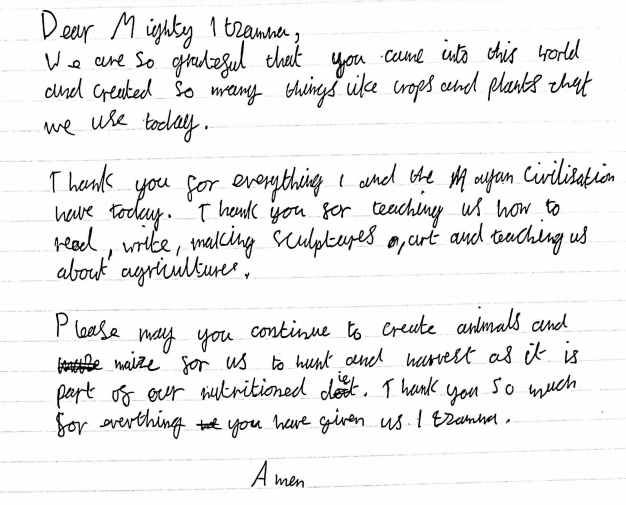 Dear Mighty Itzamna,
We are so grateful that you came into this world
and created so many things like crops and plants that
we use today.
Thank you for everything I and the Mayan Civilisation
have today. Thank you for teaching us how to
read, write, making sculptures, art and teaching us
about agricultures.
Please may you continue to create animals and
maize for us to hunt and harvest as it is
part of our nutritioned diet. Thank you so much
for everthing you have given us Itzamna.
Amen